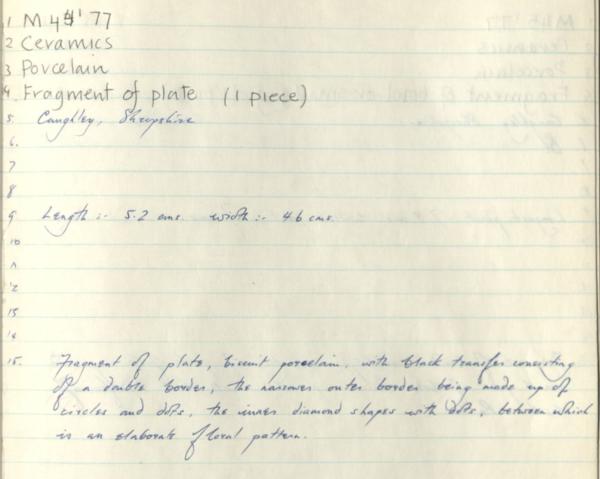 1 M 44' 77
2 Ceramics
3 Porcelain
4. Fragment of plate (1 piece)
5. Caughley, Shropshire
6.
7
8
9 Length :- 5.2 cms. width :- 4.6 cms.
10
11
12
13
14
15. Fragment of plate, biscuit porcelain, with black transfer consisting
of a double border, the narrower outer border being made up of
circles and dots, the inner diamond shapes with dots, between which
is an elaborate floral pattern.